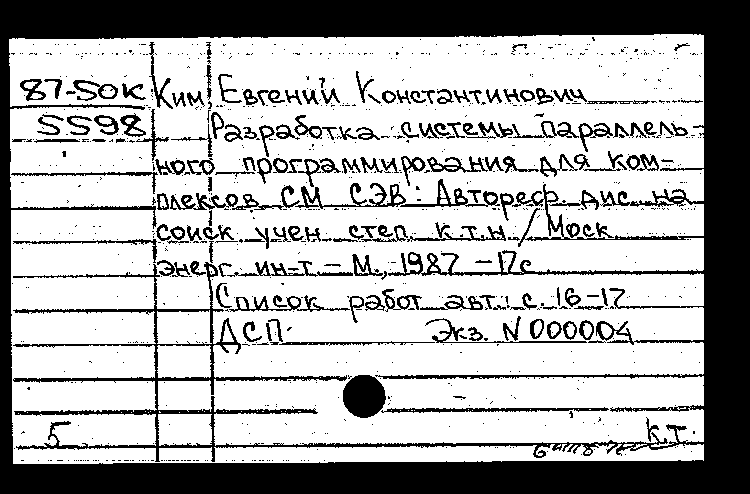 87-50К Ким, Евгений Константинович
5598 Разработка системы параллель-
ного программирования для ком-
плексов СМ СЭВ: Автореф. дис. на
соиск учен степ. к.т.н. / Моск
энерг. ин-т. – М., 1987 – 17с
Список работ авт.: с. 16-17
ДСП. Экз. N 000004
5 К.Т.